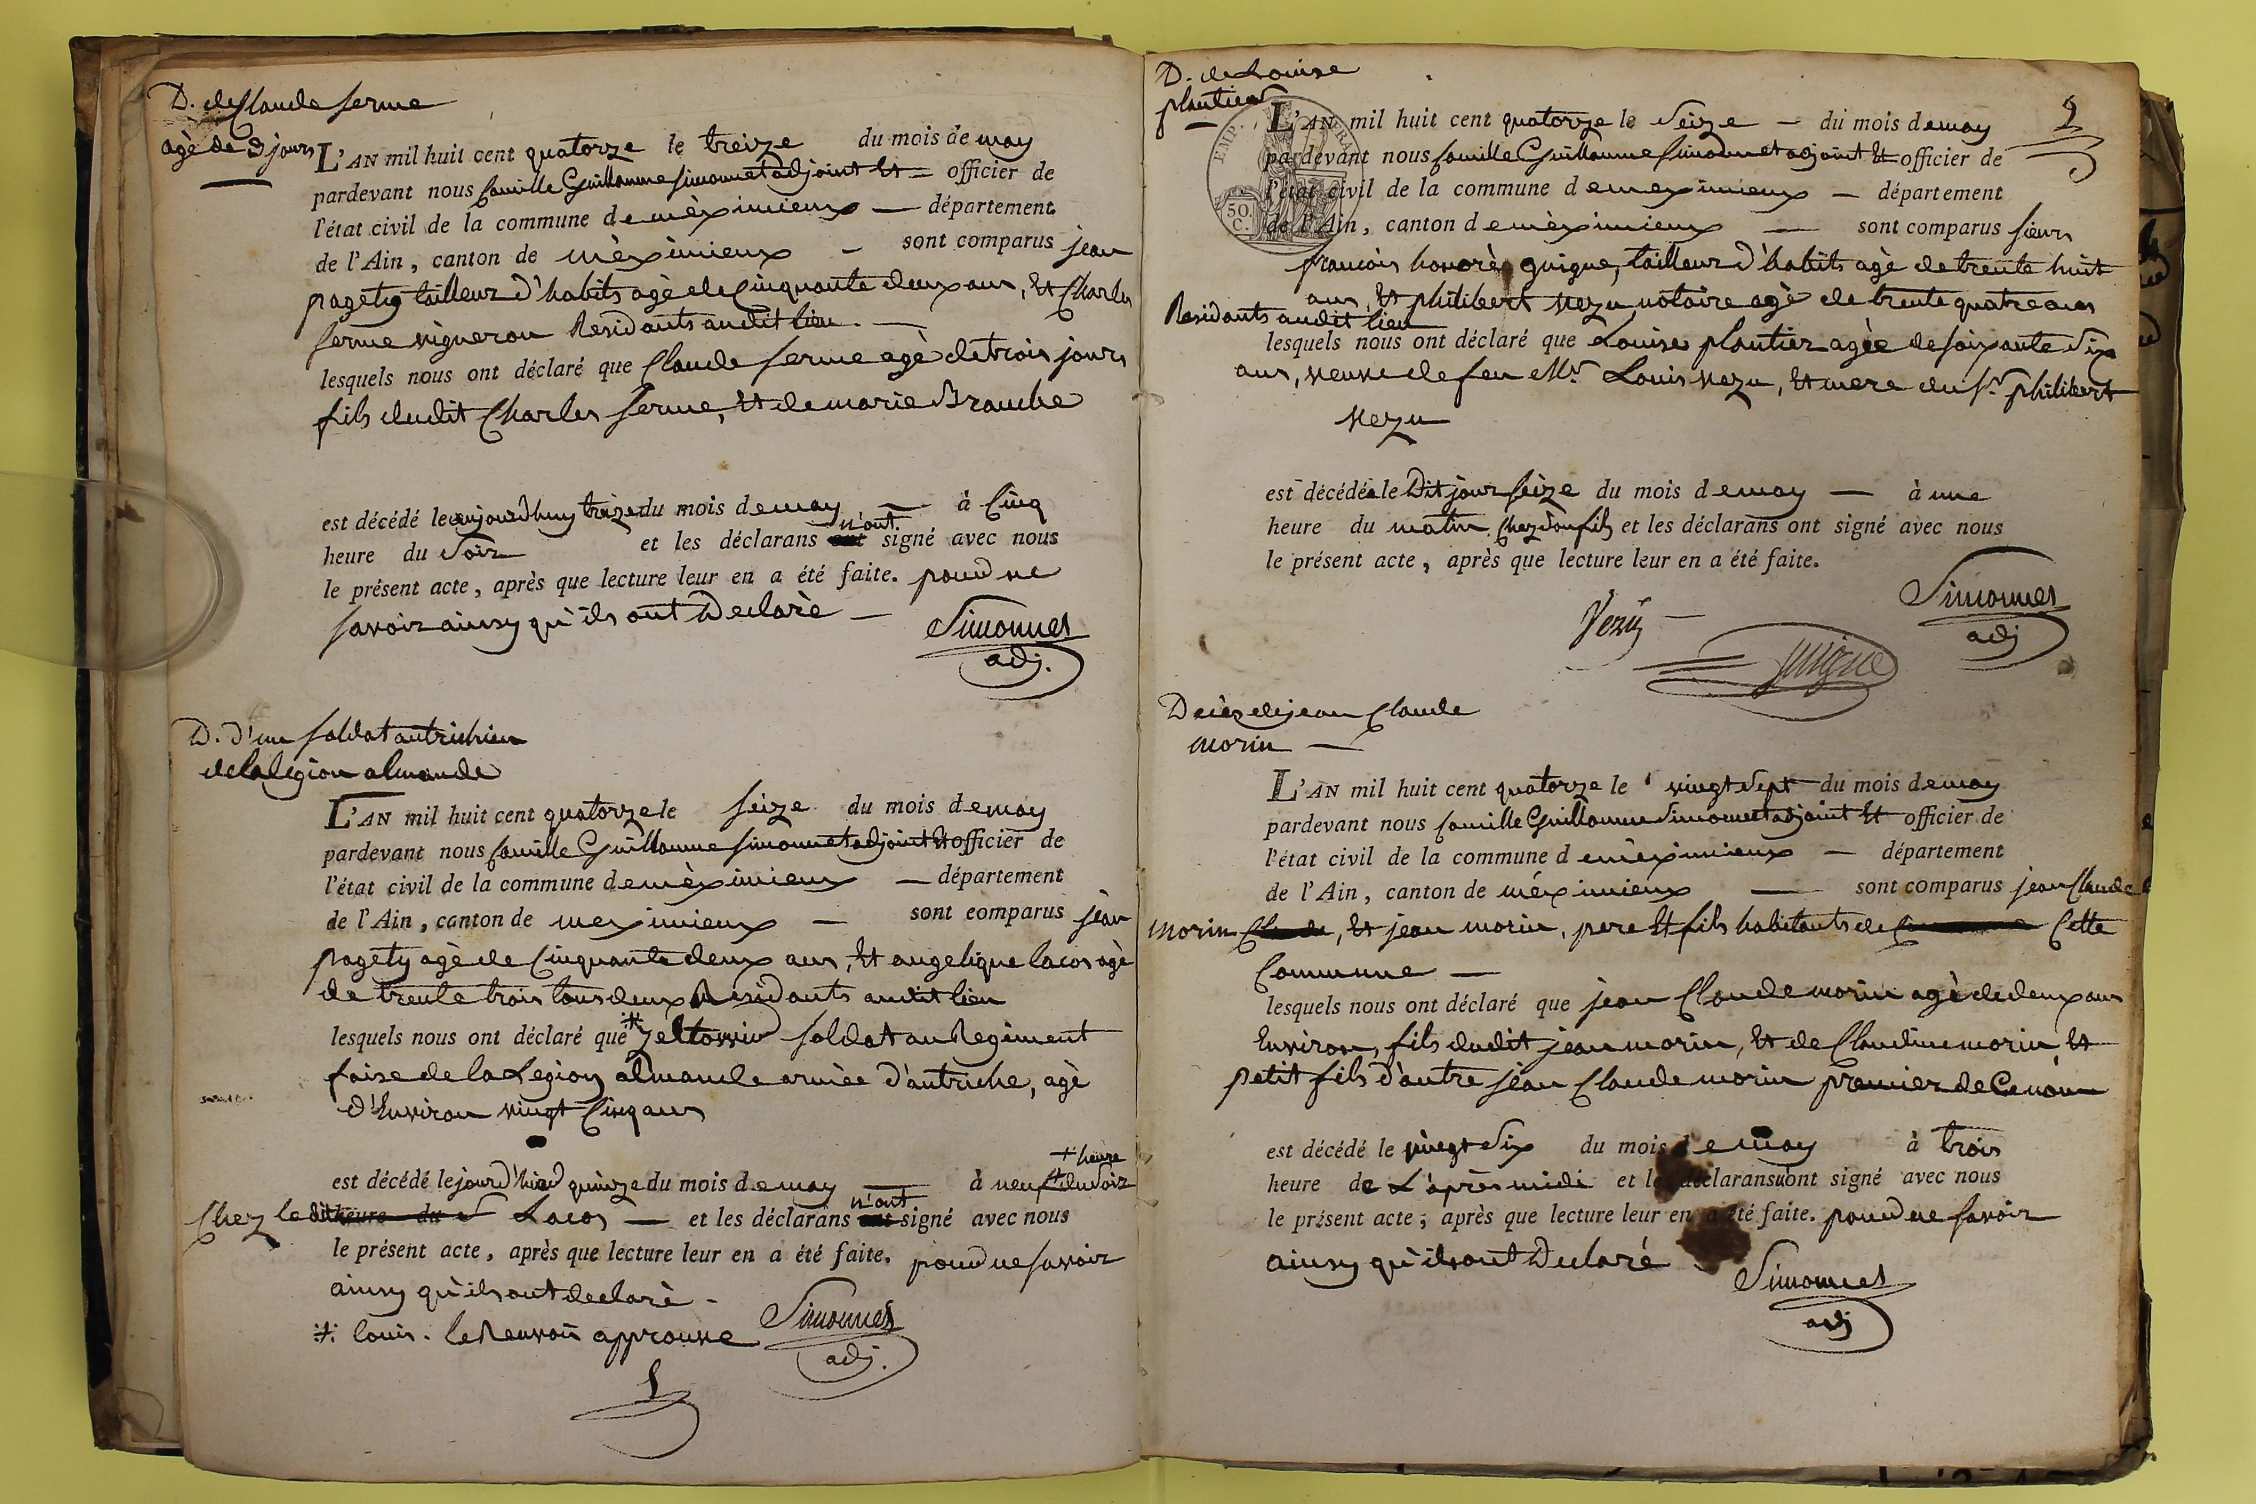 D. de Claude ferme
agè de 3 jours
L'AN mil huit cent quatorze le treize du mois de may
pardevant nous Camille Guillaume Simonnet adjoint Et officier de
l'état civil de la commune de mèximieux — département
de l'Ain, canton de mèximieux — sont comparus jean
pagety tailleur d'habits agè de Cinquante deux ans, Et Charles
ferme vigneron Residants audit lieu. —
lesquels nous ont déclaré que Claude ferme agè de trois jours
fils dudit Charles ferme, Et de marie Branche
est décédé le aujourd'huy treize du mois de may — à Cinq
heure du Soir et les déclarans n'ont signé avec nous
le présent acte, après que lecture leur en a été faite. pour ne
savoir ainsy qu'ils ont Declarè —
Simonnet
adj.
D. d'un soldat autrichien
de la legion almande
L'AN mil huit cent quatorze le seize du mois de may
pardevant nous Camille Guillaume Simonnet adjoint Et officier de
l'état civil de la commune de mèximieux — département
de l'Ain, canton de meximieux — sont comparus jean
pagety agè de Cinquante deux ans, Et angelique lacos agè
de trente trois tous deux Residants audit lieu
lesquels nous ont déclaré que * soldat au Regiment
de la Legion almande armèe d'autriche, agè
d'Environ vingt Cinq ans
+ heure
est décédé le jour d'hier quinze du mois de may — à neuf + du Soir
Chez le dit heure du S Lacos — et les déclarans n'ont signé avec nous
le présent acte, après que lecture leur en a été faite. pour ne savoir
ainsy qu'ils ont declarè —
* louis. le Renvoi approuve
Simonnet
adj.
D. de Louise
plantier
2
L'AN mil huit cent quatorze le Seize — du mois de may
pardevant nous Camille Guillaume Simonnet adjoint Et officier de
l'état civil de la commune de meximieux — département
de l'Ain, canton de mèximieux — sont comparus sieurs
EMP. FRA
50. C.
francois honorè guigue, tailleur d'habits agè de trente huit
ans, Et philibert vezu notaire agè de trente quatre ans
Residants audit lieu
lesquels nous ont déclaré que Louise plantier agèe de soixante Six
ans, veuve de feu Mr. Louis vezu, Et mere du sr. philibert
vezu
est décédée le Dit jour seize du mois de may — à une
heure du matin chez Son fils et les déclarans ont signé avec nous
le présent acte, après que lecture leur en a été faite.
Simonnet
adj
Vezu
guigue
Decès de jean Claude
morin —
L'AN mil huit cent quatorze le vingt Sept du mois de may
pardevant nous Camille Guillaume Simonnet adjoint Et officier de
l'état civil de la commune de mèximieux — département
de l'Ain, canton de méximieux — sont comparus jean Claude
morin Claude, Et jean morin, pere Et fils habitants de Cette
Commune —
lesquels nous ont déclaré que jean Claude morin agè de deux ans
Environ, fils dudit jean morin, Et de Claudine morin, Et
petit fils d'autre jean Claude morin premier de Ce nom
est décédé le vingt Six du mois de may à trois
heure de L'après midi et les déclarans n'ont signé avec nous
le présent acte, après que lecture leur en a été faite. pour ne savoir
ainsy qu'ils ont Declaré
Simonnet
adj